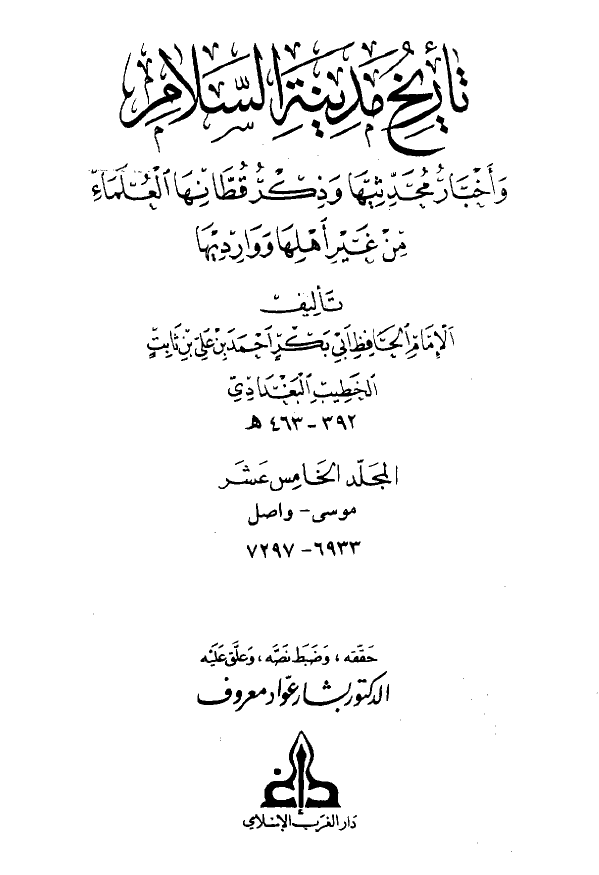 تأريخ مدينة السلام
وَأَخْبَارُ مُحَدِّثِيهَا وَذِكْرُ قُطَّانِهَا الْعُلَمَاءِ
مِنْ غَيْرِ أَهْلِهَا وَوَارِدِيهَا
تأليف
الإمام الحافظ أبي بكر أحمد بن علي بن ثابت
الخطيب البغدادي
٣٩٢ - ٤٦٣ هـ
المجلد الخامس عشر
موسى - واصل
٦٩٣٣ - ٧٢٩٧
حققه، وضبط نصه، وعلق عليه
الدكتور بشار عواد معروف
دار الغرب الإسلامي